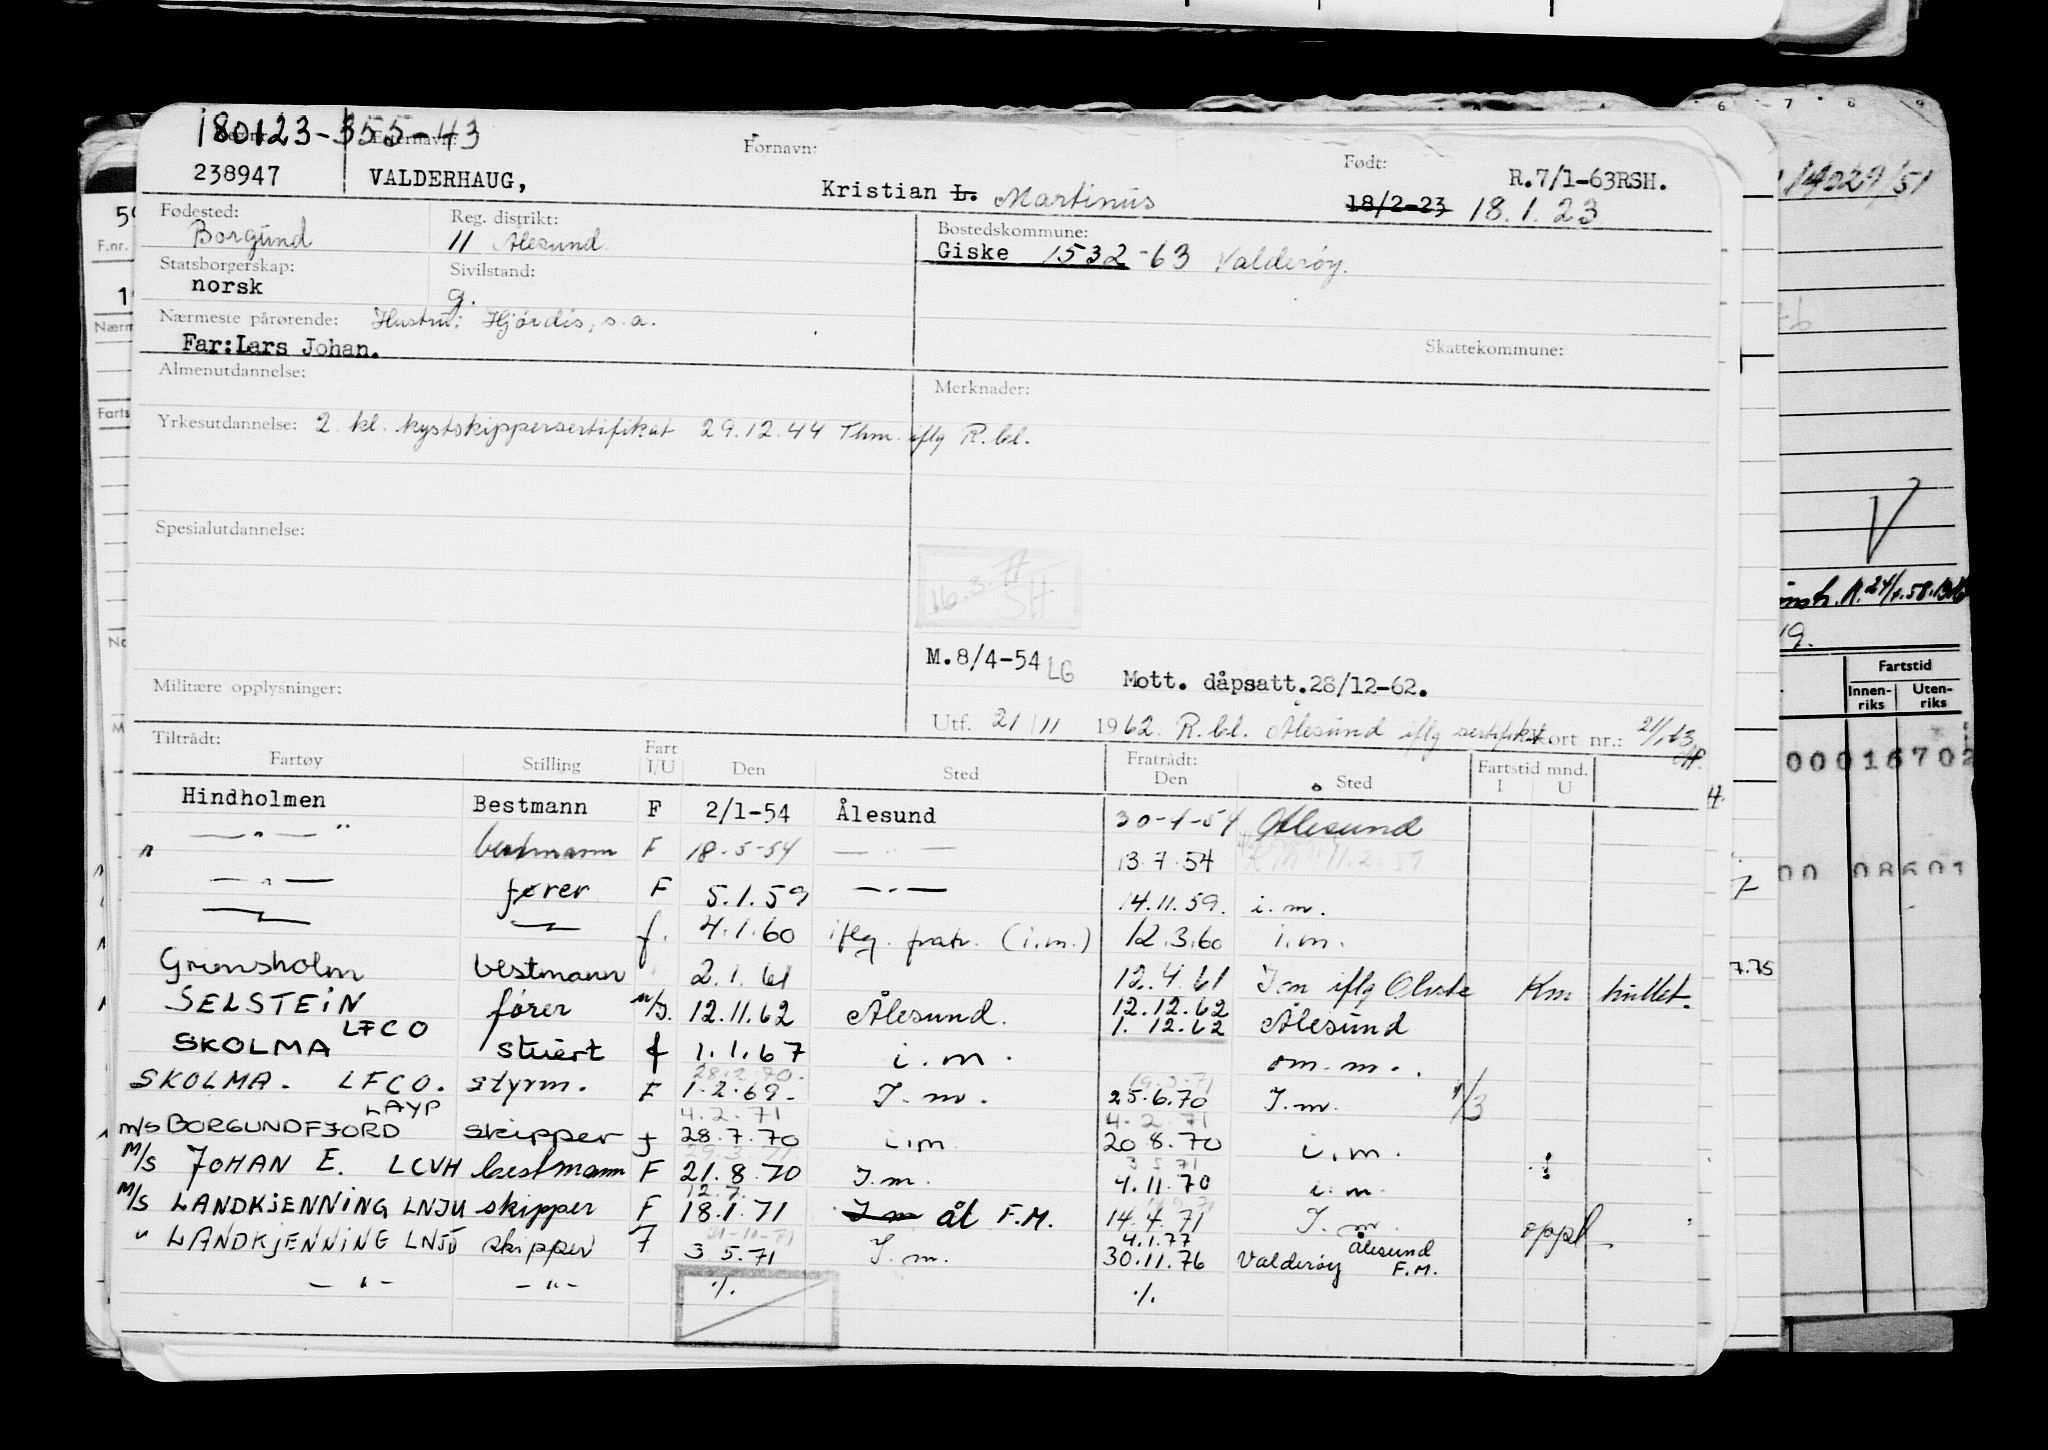 180123-355-43
Etternavn:
Fornavn:
Født:
R.7/1-63RSH.
238947 VALDERHAUG, Kristian L. Martinus 18/2-23 18.1.23
Fødested: Reg. distrikt: Bostedskommune:
Borgund 11 Ålesund Giske 1532-63 Valderøy.
Statsborgerskap: Sivilstand:
norsk g.
Nærmeste pårørende: Hustru: Hjördis, s.a.
Far:Lars Johan.
Skattekommune:
Almenutdannelse: Merknader:
Yrkesutdannelse: 2 kl. kystskippersertifikat 29.12.44 Thm. iflg R.bl.
Spesialutdannelse:
16.3.77
SH
M.8/4-54 LG
Mott. dåpsatt.28/12-62.
Militære opplysninger:
Utf. 21/11 1962 R.bl. Ålesund iflg sertifikat Kort nr.:
Tiltrådt: Fratrådt:
Fartøy Stilling Fart I/U Den Sted Den Sted Fartstid mnd. I U
Hindholmen Bestmann F 2/1-54 Ålesund 30-4-54 Ålesund
— " — " bestmann F 18-5-54 — " — 13.7.54
— " — fører F 5.1.59 — " — 14.11.59. i.m.
f. 4.1.60 iflg. fratr. (i.m.) 12.3.60 i.m.
Grimsholm bestmann 2.1.61 12.4.61 I.m iflg Km
SELSTEIN fører 12.11.62 Ålesund. 12.12.62
LFCO 1.12.62 Ålesund
SKOLMA stuert f 1.1.67 i.m. om.m.
28.2.70. 19.3.71
SKOLMA. LFCO. styrm. F 1.2.69- I.m. 25.6.70 I.m. 1/3
LAYP 4.2.71 4.2.71
m/s BORGUNDFJORD skipper f 28.7.70 i.m 20 8.70 i.m.
3 5.71
M/S JOHAN E. LCVH bestmann F 21.8.70 I.m. 4.11.70 i.m.
12.7.
M/S LANDKJENNING LNJU skipper F 18.1.71 I m åt F.M. 14.4.71 I.m.
21-10-71 4.1.77 Ålesund oppl
" LANDKJENNING LNJU skipper F 3 5.71 I.m. 30.11.76 Valderøy F.M.
— " — — " — ./. ./.
14029/51
Fartstid
Innen-riks Uten-riks
00016702
00 08601
7.75